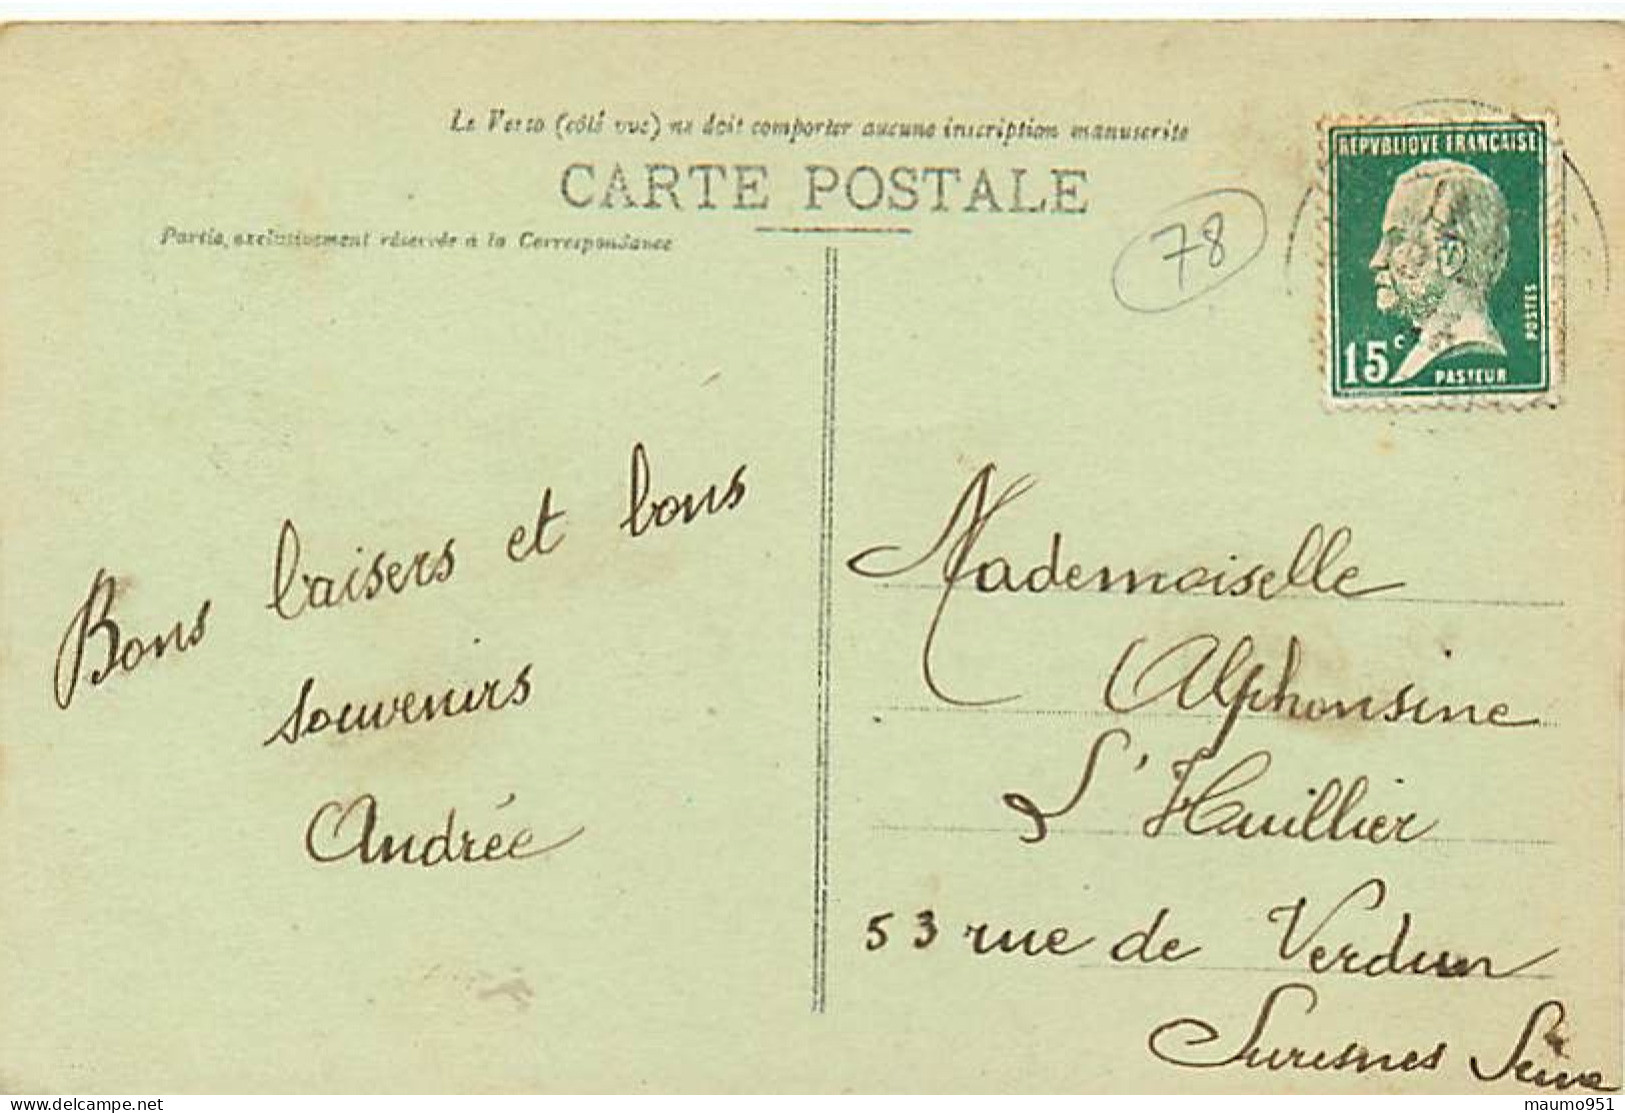 Le Verso (côté vue) ne doit comporter aucune inscription manuscrite
CARTE POSTALE
Partie exclusivement réservée à la Correspondance
78
REPVBLIQVE FRANCAISE
POSTES
15c
PASTEUR
Bons baisers et bons
souvenirs
Andrée
Mademoiselle
Alphonsine
L'Huillier
53 rue de Verdun
Suresnes Seine
delcampe.net
maumo951